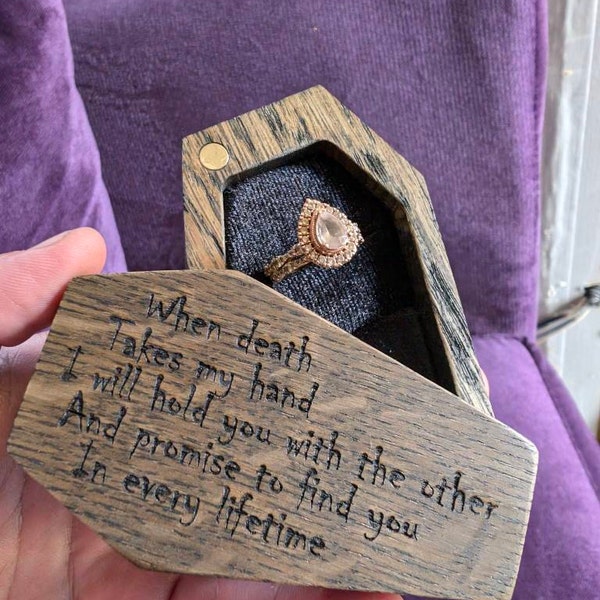 When death
Takes my hand
I will hold you with the other
And promise to find you
In every lifetime